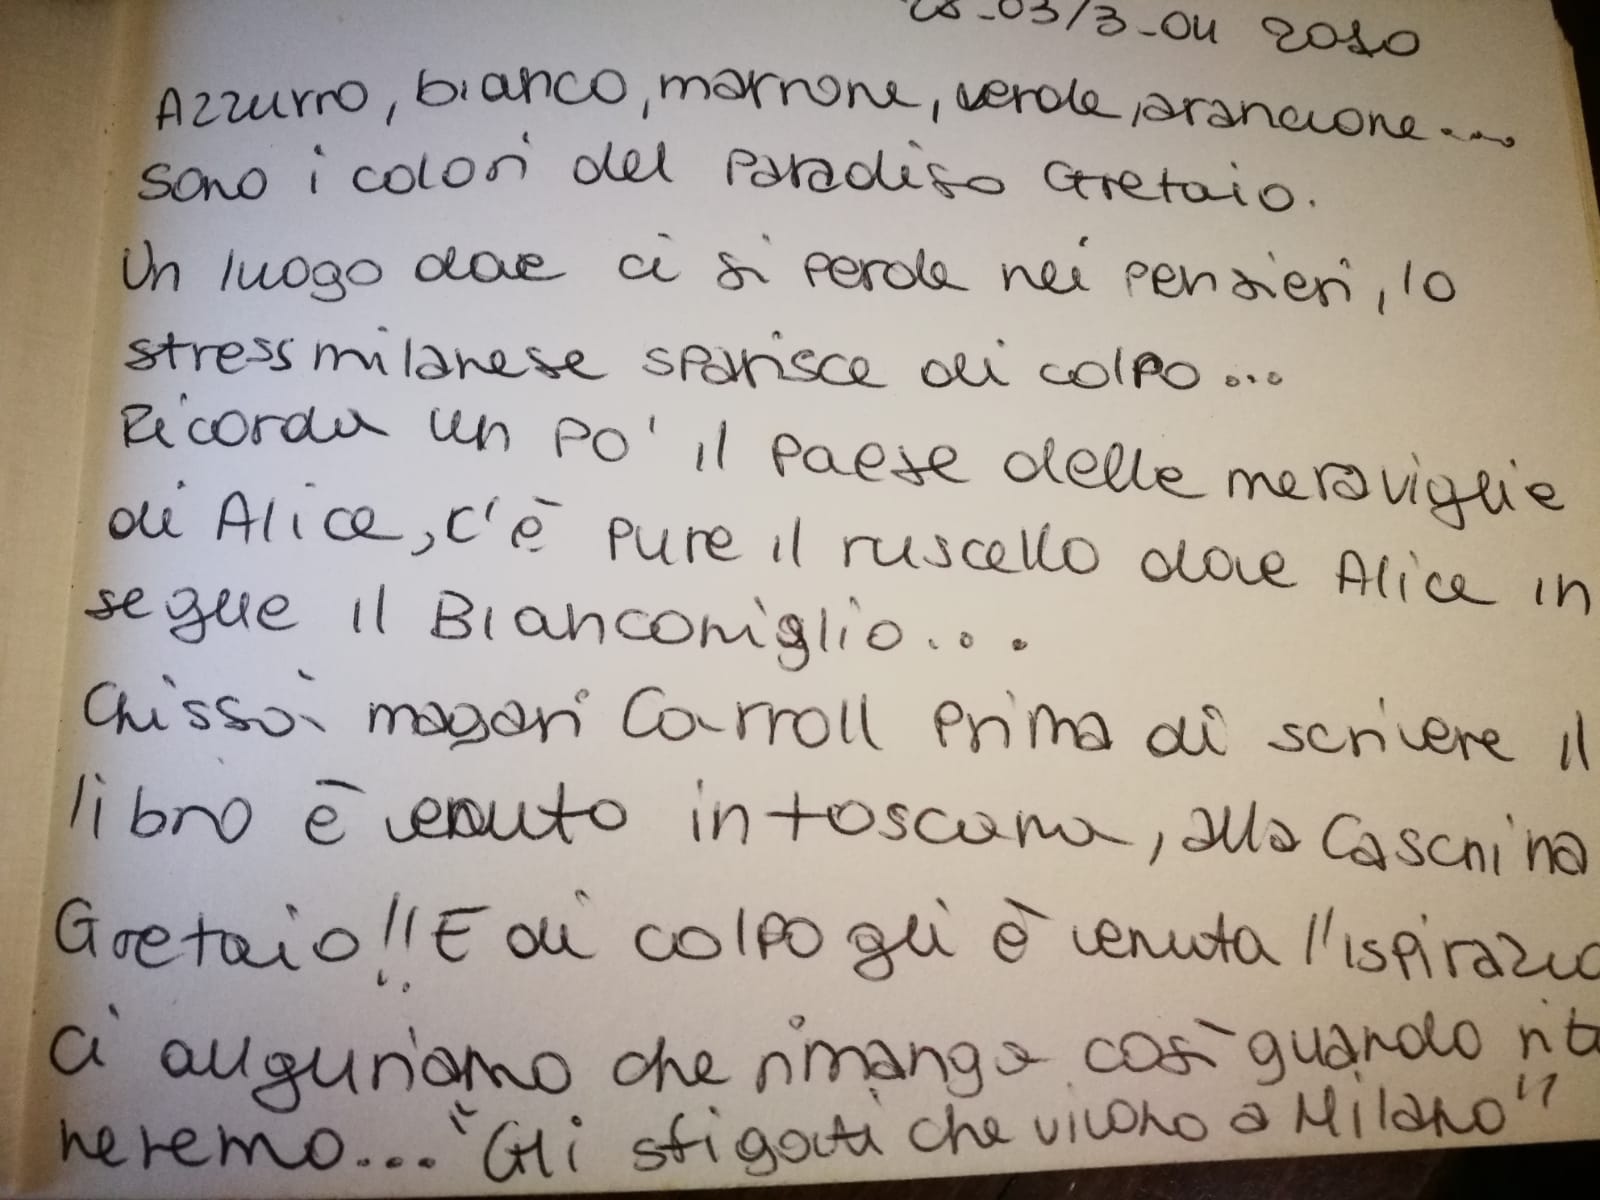 28-03/3-04 2010
Azzurro, bianco, marrone, verde, arancione....
sono i colori del Paradiso Gretaio.
Un luogo dove ci si perde nei pensieri, lo
stress milanese sparisce di colpo...
Ricorda un po' il paese delle meraviglie
di Alice, c'è pure il ruscello dove Alice in
segue il Bianconiglio...
Chissà magari Carroll prima di scrivere il
libro è venuto in toscana, alla Cascnina
Gretaio!! E di colpo gli è venuta l'ispirazio
Ci auguriamo che rimanga così quando rito
neremo... "Gli sfigati che vivono a Milano"